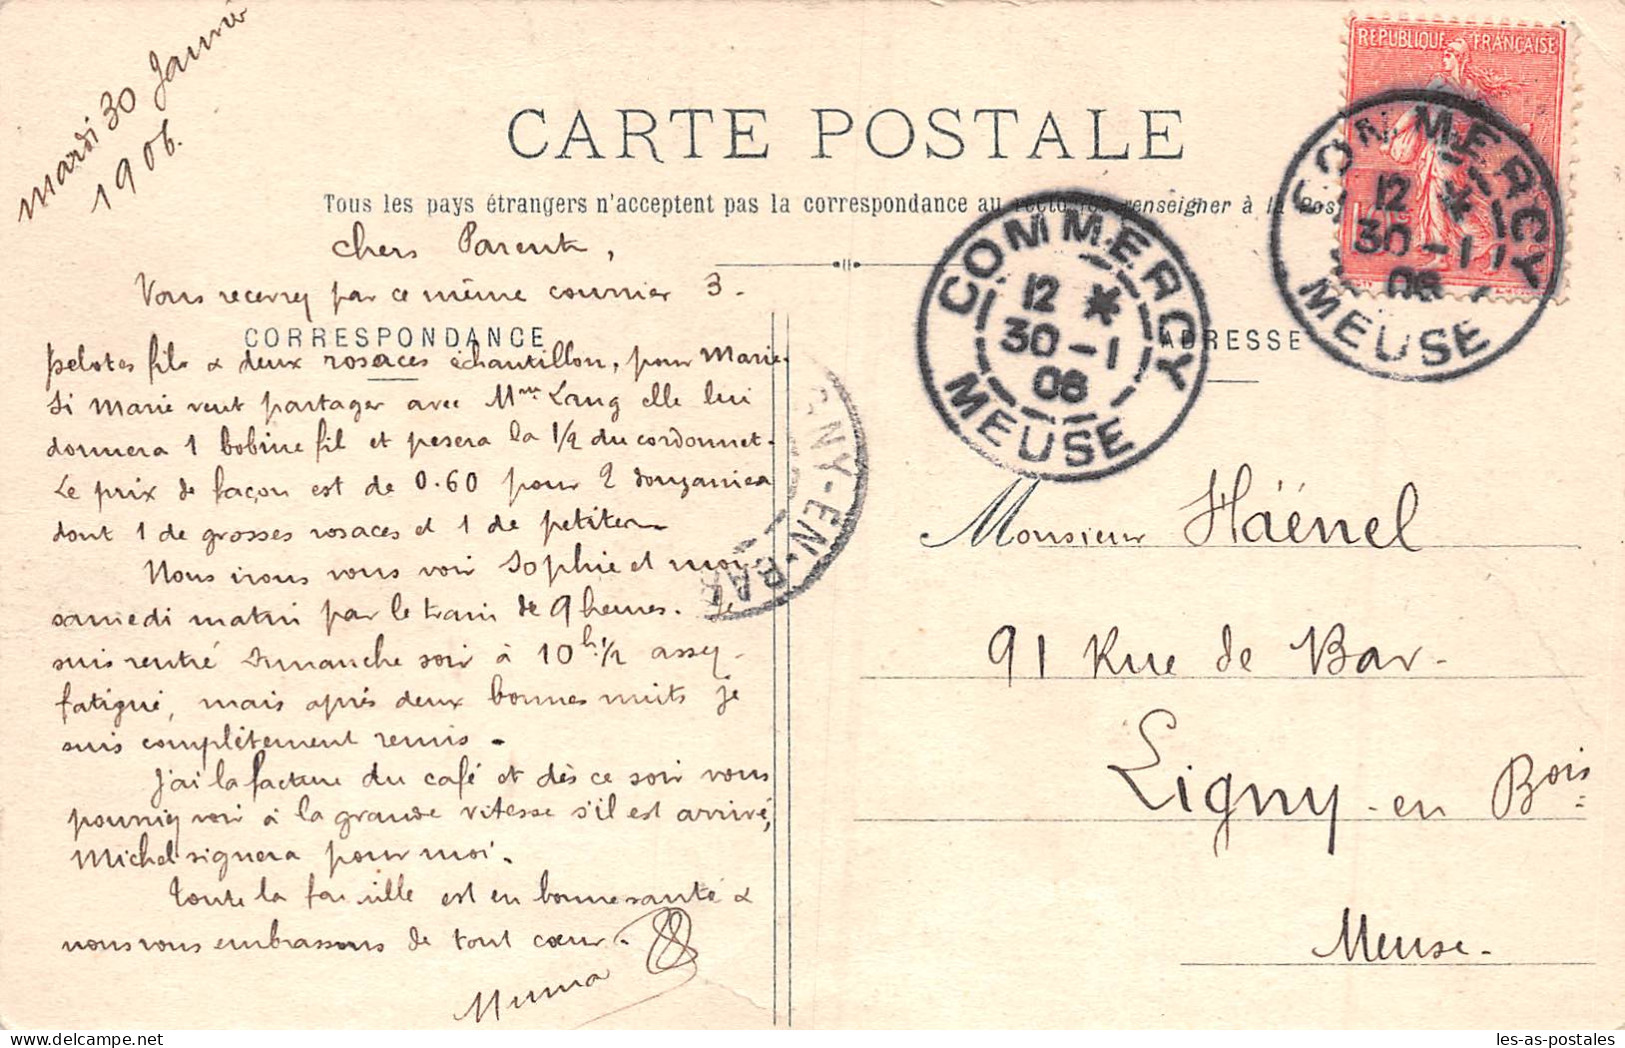 mardi 30 Janvier
1906.
CARTE POSTALE
Tous les pays étrangers n'acceptent pas la correspondance au recto (se renseigner à la Pos
REPUBLIQUE FRANÇAISE
COMMERCY
12 *
30-1
06
MEUSE
COMMERCY
12 *
30-1
06
MEUSE
Chers Parents,
Vous recevrez par ce même courrier 3
CORRESPONDANCE
ADRESSE
pelotes fil & deux rosaces échantillon, pour Marie.
Si Marie veut partager avec Mme Lang elle lui
donnera 1 bobine fil et pesera la 1/2 du cordonnet.
Le prix de façon est de 0.60 pour 2 douzaines
dont 1 de grosses rosaces et 1 de petites
Nous irons vous voir Sophie et moi
samedi matin par le train de 9 heures. Je
suis rentré Dimanche soir à 10h 1/2 assez
fatigué, mais après deux bonnes nuits je
suis complètement remis.
J'ai la facture du café et dès ce soir vous
pourriez voir à la grande vitesse s'il est arrivé,
Michel signera pour moi.
Toute la famille est en bonne santé &
nous vous embrassons de tout cœur.
GNY-EN-BAR
Monsieur Häénel
91 Rue de Bar
Ligny-en Bois
Meuse
les-as-postales